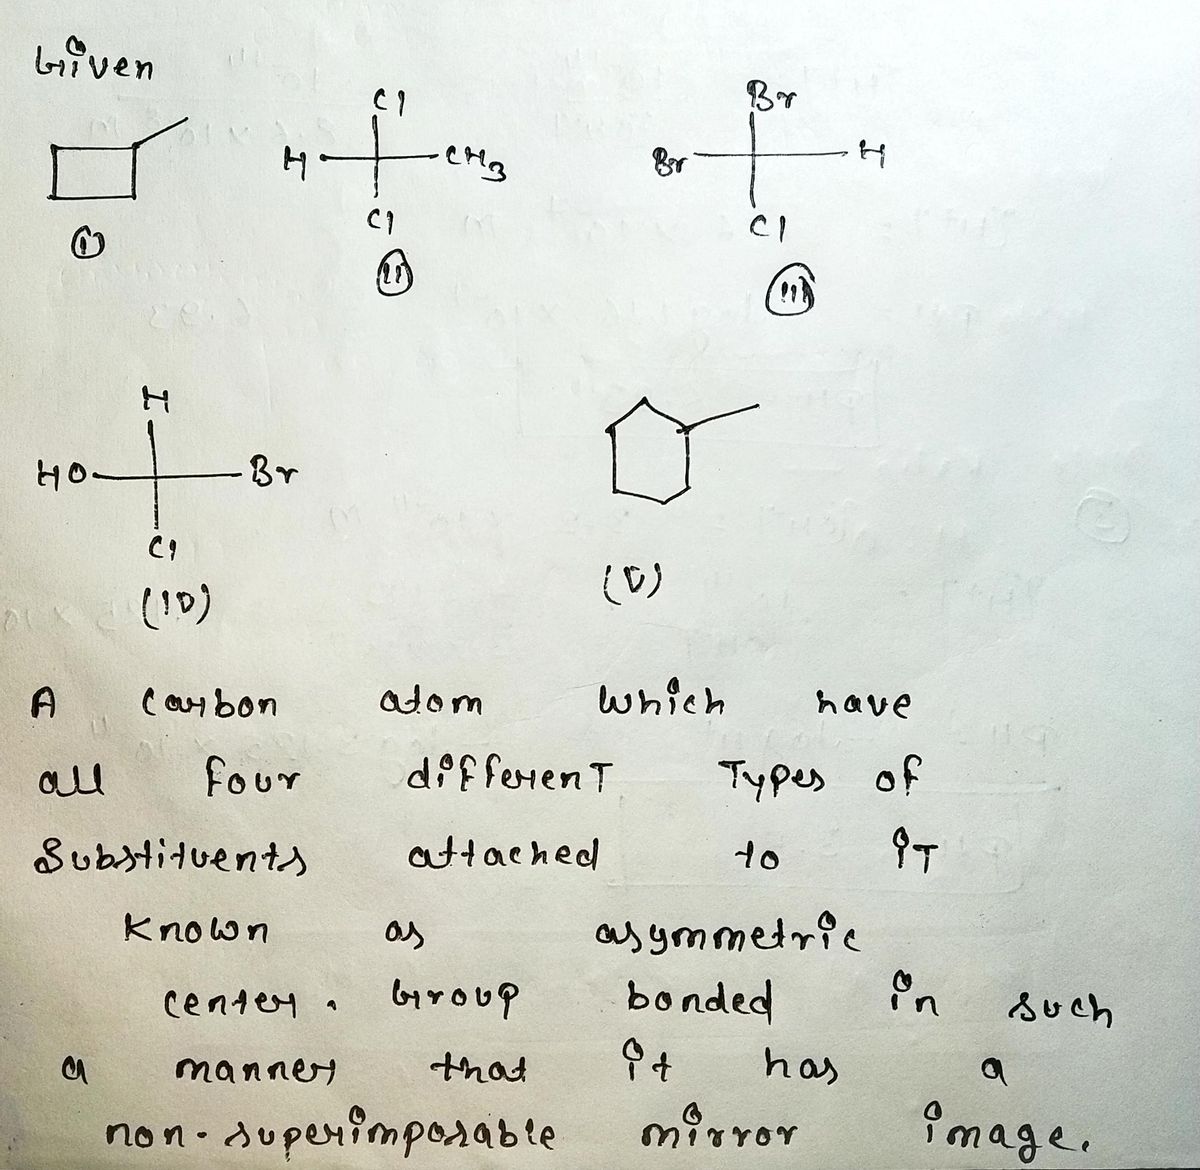 Given
Cl Br
H CH3 Br H
Cl Cl
(i) (ii) (iii)
H
HO Br
Cl
(iv) (v)
A carbon atom which have
all four different Types of
Substituents attached to iT
Known as asymmetric
center. Group bonded in such
a manner that it has a
non-superimposable mirror image.